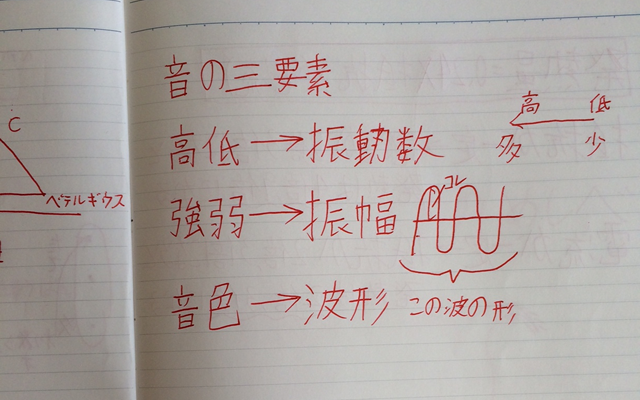 C
ベテルギウス
音の三要素
高低→振動数
高 低
多 少
強弱→振幅
コレ
音色→波形 この波の形